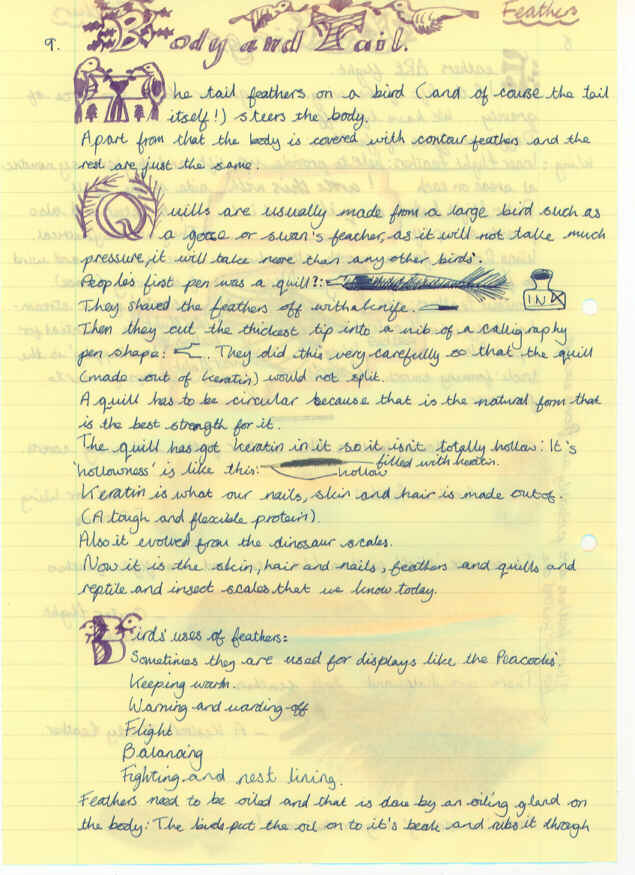 Feathers
9. Body and Tail.
The tail feathers on a bird (and of course the tail
itself!) steers the body.
Apart from that the body is covered with contour feathers and the
rest are just the same.
Quills are usually made from a large bird such as
a goose or swan's feather, as it will not take much
pressure, it will take more than any other birds'.
People's first pen was a quill?:
INK
They shaved the feathers off with a knife.
Then they cut the thickest tip into a nib of a calligraphy
pen shape: . They did this very carefully so that the quill
(made out of keratin) would not split.
A quill has to be circular because that is the natural form that
is the best strength for it.
The quill has got keratin in it so it isn't totally hollow: It's
'hollowness' is like this: hollow filled with keratin.
Keratin is what our nails, skin and hair is made out of.
(A tough and flexible protein).
Also it evolved from the dinosaur scales.
Now it is the skin, hair and nails, feathers and quills and
reptile and insect scales that we know today.
Birds' uses of feathers:
Sometimes they are used for displays like the Peacocks'.
Keeping warm.
Warning and warding-off
Flight
Balancing
Fighting and nest lining.
Feathers need to be oiled and that is done by an oiling gland on
the body: The birds put the oil on to it's beak and rubs it through